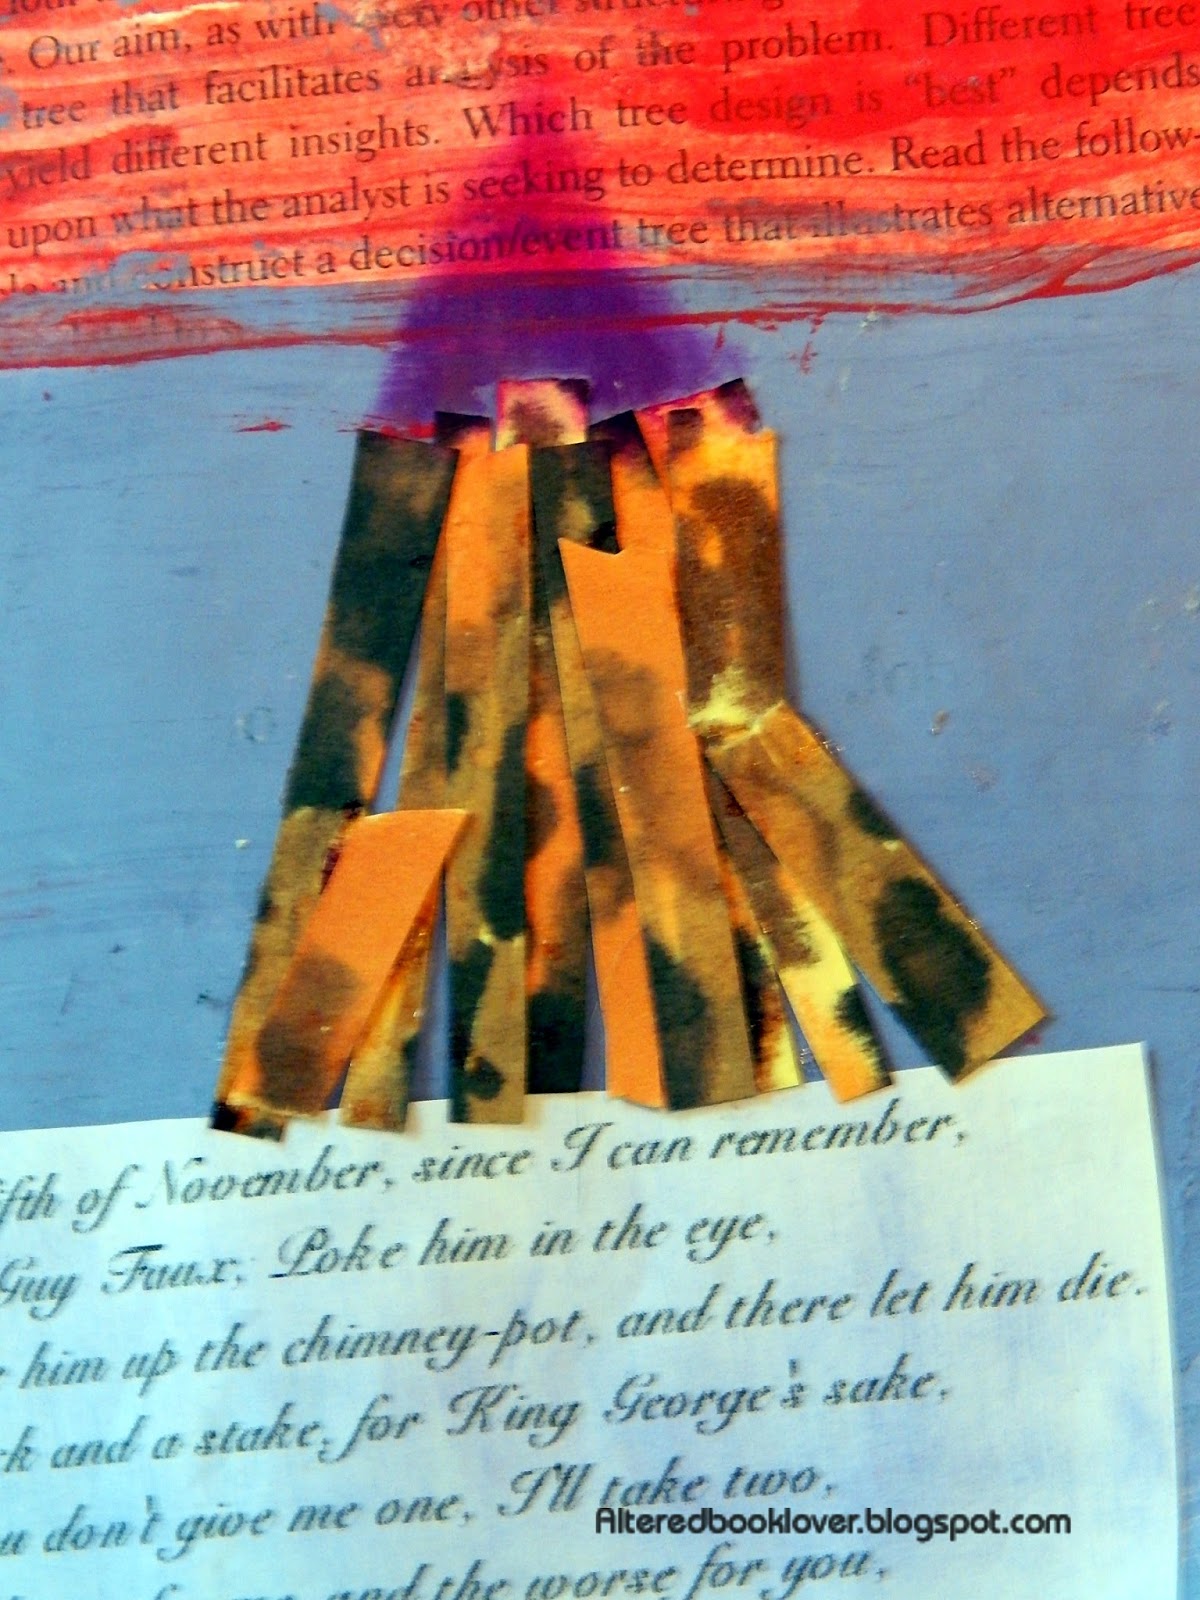 Our aim, as with every other
tree that facilitates analysis of the problem. Different tree
yield different insights. Which tree design is "best" depends
upon what the analyst is seeking to determine. Read the follow-
and construct a decision/event tree that illustrates alternative
fth of November, since I can remember,
Guy Faux; Poke him in the eye,
him up the chimney-pot, and there let him die.
k and a stake, for King George's sake,
u don't give me one, I'll take two,
Alteredbooklover.blogspot.com
and the worse for you,